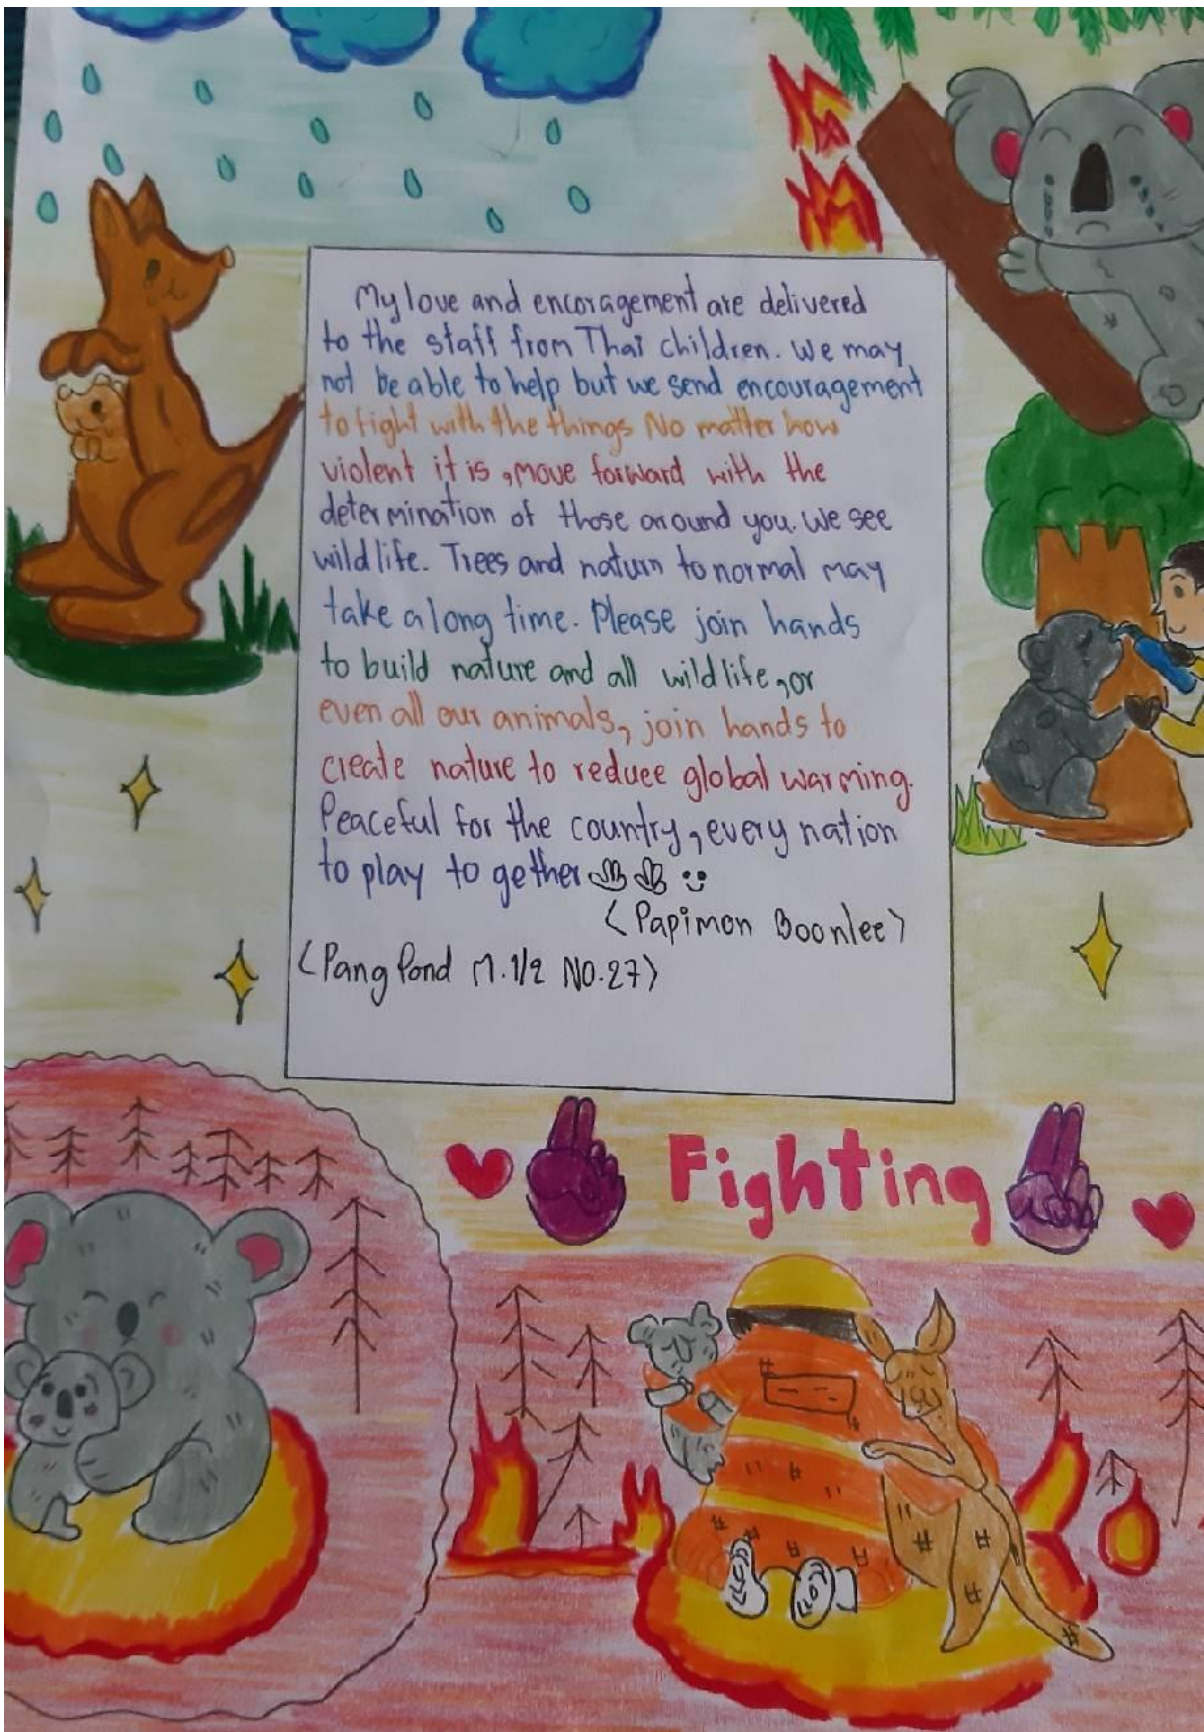 My love and encoragement are delivered
to the staff from Thai children. We may
not be able to help but we send encouragement
to fight with the things No matter how
violent it is , move forward with the
determination of those around you. We see
wildlife. Trees and naturn to normal may
take a long time. Please join hands
to build nature and all wildlife , or
even all our animals, join hands to
create nature to reduce global warming.
Peaceful for the country , every nation
to play to gether
<Papimon Boonlee>
<Pang Pond M.1/2 NO.27>
Fighting